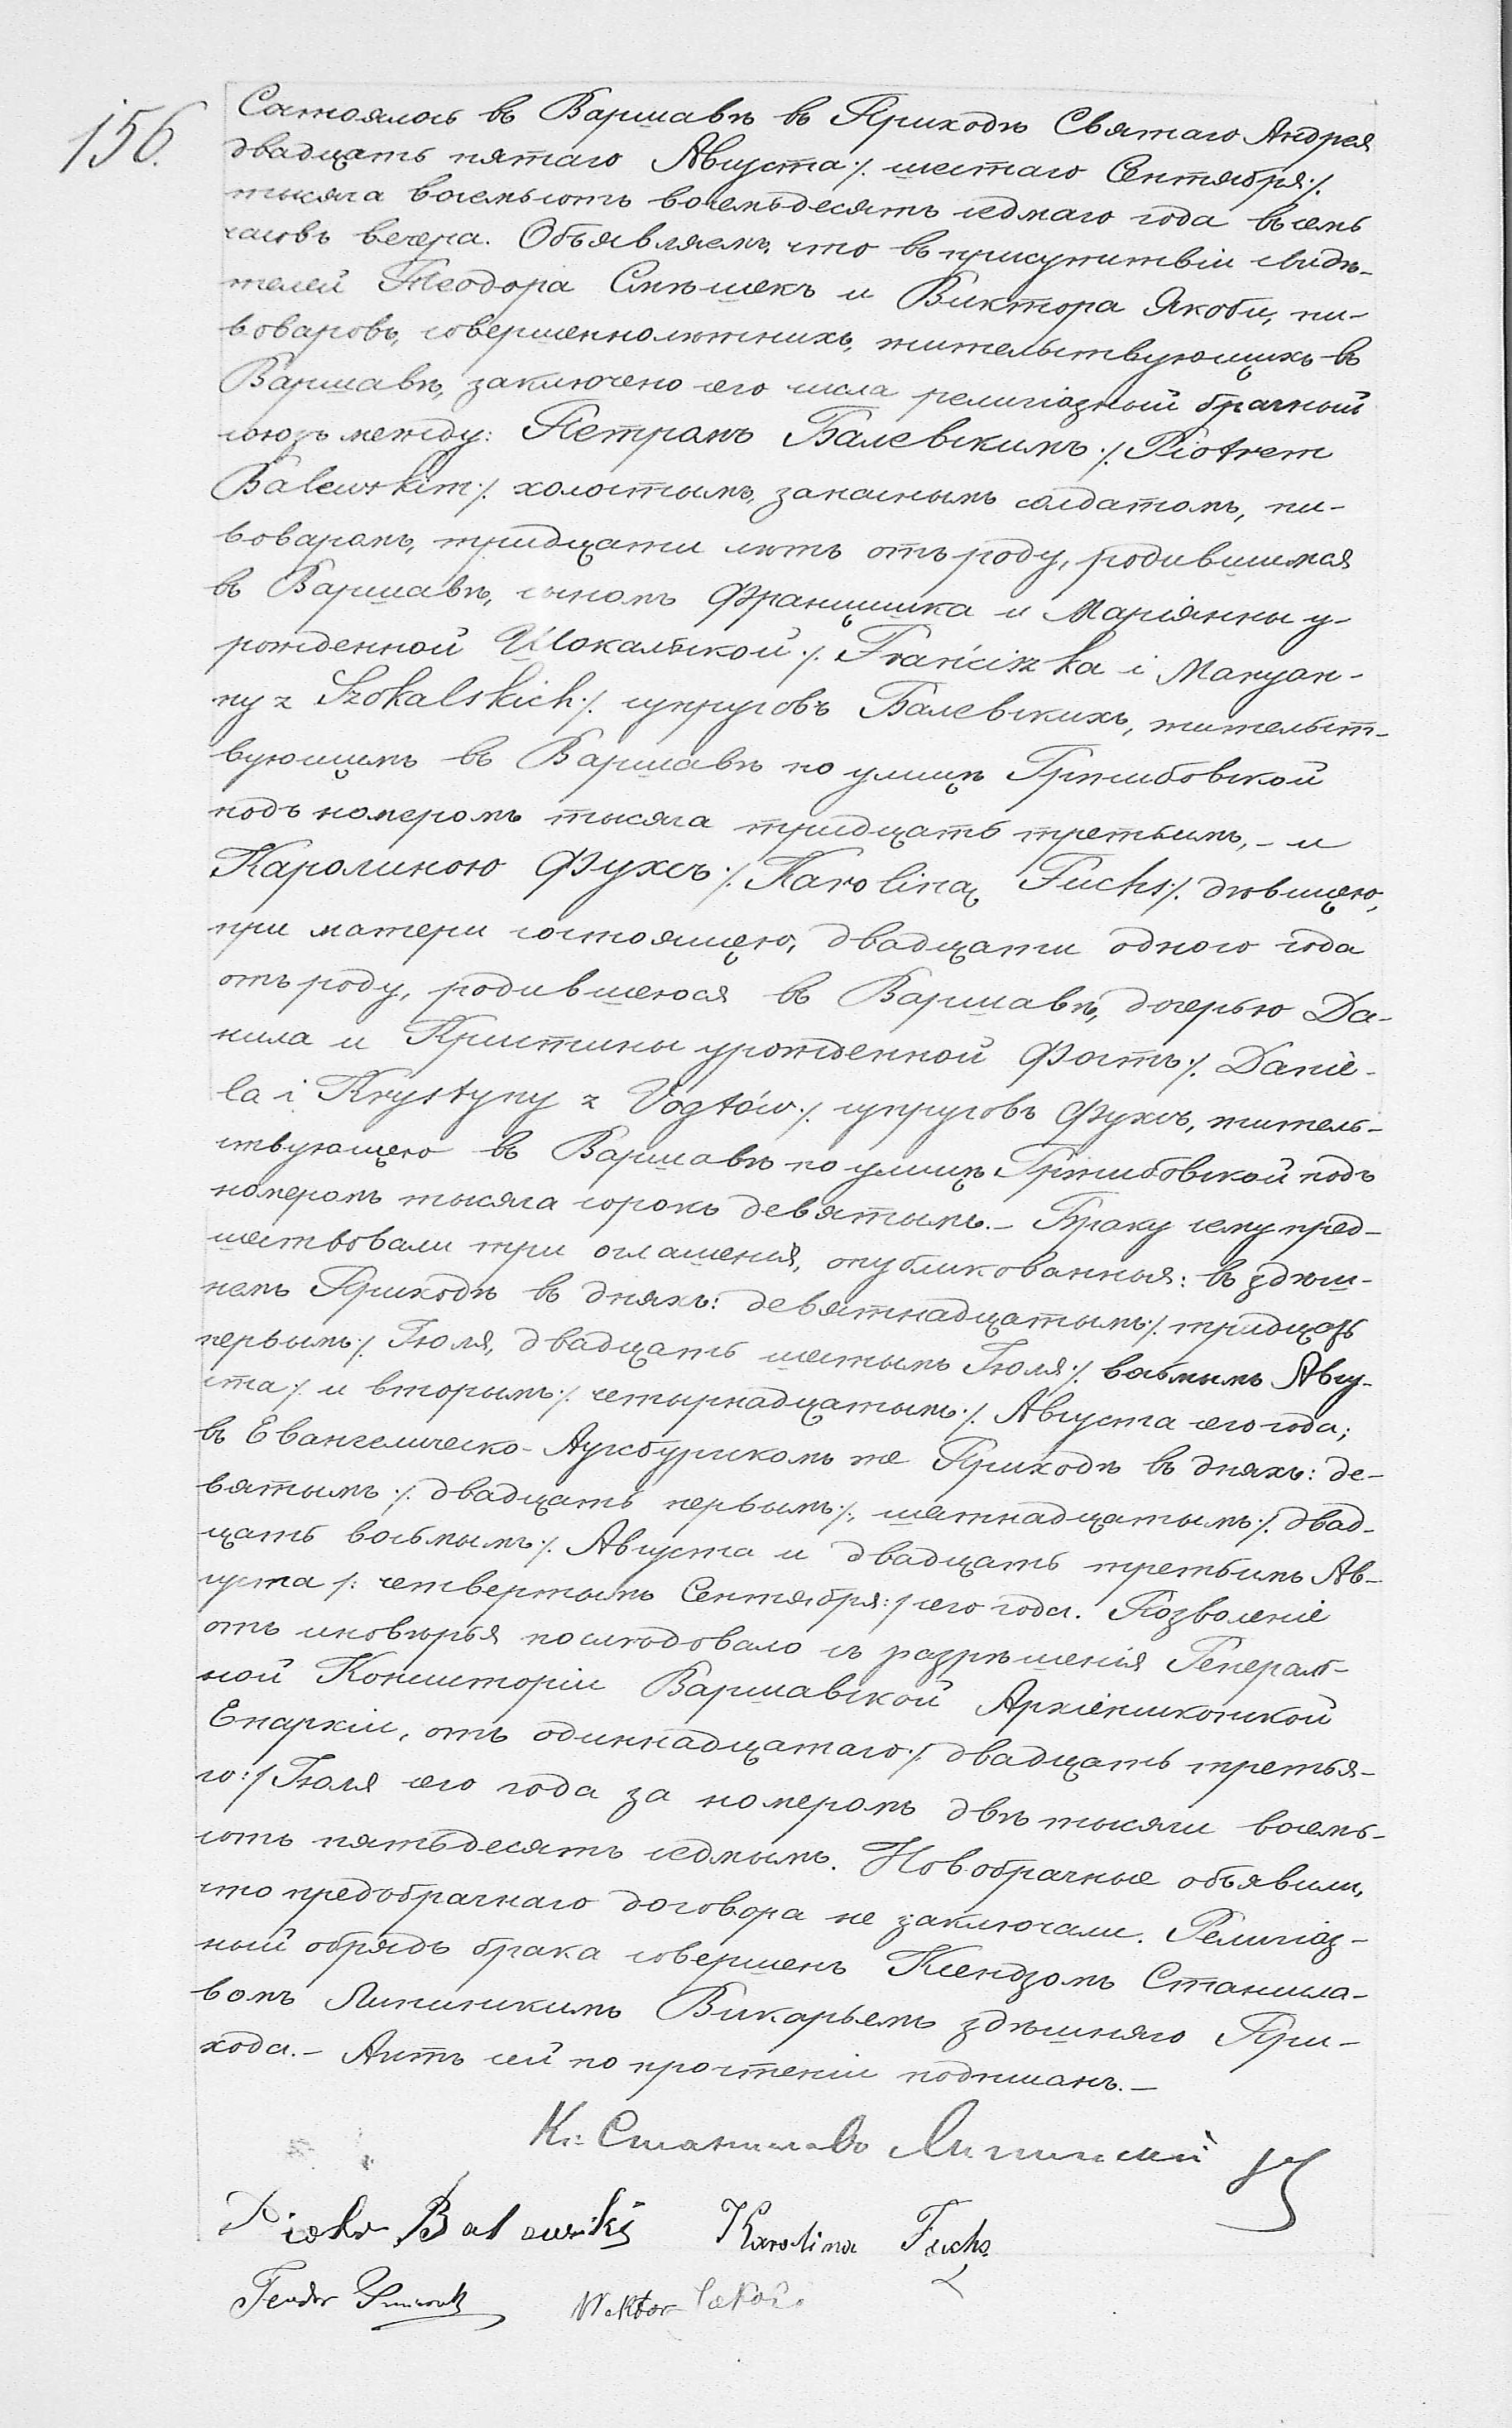 156.
Состоялось въ Варшавѣ въ Приходѣ Святаго Андрея
двадцать пятаго Августа ·/. шестаго Сентября ·/.
тысяча восемьсотъ восемьдесятъ седмаго года въ семь
часовъ вечера. Объявляемъ, что въ присутствіи свидѣ-
телей Теодора Смѣшекъ и Виктора Якоби, пи-
воваровъ, совершеннолѣтнихъ, жительствующихъ въ
Варшавѣ, заключено сего числа религіазный брачный
союзъ между: Петромъ Балевскимъ ·/. Piotrem
Balewskim ·/. холостымъ, запаснымъ солдатомъ, пи-
воваромъ, тридцати лѣтъ отъ роду, родившимся
въ Варшавѣ, сыномъ Францишка и Маріянны у-
рожденной Шокальской ·/. Franciszka i Maryan-
ny z Szokalskich ·/. супруговъ Балевскихъ, жительст-
вующимъ въ Варшавѣ по улицѣ Гржибовской
подъ номеромъ тысяча тридцать третьимъ, - и
Каролиною Фухсъ ·/. Karoliną Fuchs ·/. дѣвицею,
при матери состоящею, двадцати одного года
отъ роду, родившеюся въ Варшавѣ, дочерью Да-
нила и Кристины урожденной Фогтъ ·/. Danie-
la i Krystyny z Vogtów ·/. супруговъ Фухсъ, житель-
ствующею въ Варшавѣ по улицѣ Гржибовской подъ
номеромъ тысяча сорокъ девятымъ. - Браку сему пред-
шествовали три оглашенія, опубликованныя: въ здѣш-
немъ Приходѣ въ дняхъ: девятнадцатымъ ·/. тридцать
первымъ ·/. Іюля, двадцать шестымъ Іюля ·/. восьмымъ Авгу-
ста ·/. и вторымъ ·/. четырнадцатымъ ·/. Августа сего года;
въ Евангелическо-Аугсбургскомъ же Приходѣ въ дняхъ: де-
вятымъ ·/. двадцать первымъ ·/., шестнадцатымъ ·/. двад-
цать восьмымъ ·/. Августа и двадцать третьимъ Ав-
густа /: четвертымъ Сентября :/ сего года. Позволеніе
отъ иновѣрья послѣдовало съ разрѣшенія Генераль-
ной Консисторіи Варшавской Архіепископской
Епархіи, отъ одиннадцатаго ·/. двадцать третья-
го :/ Іюля сего года за номеромъ двѣ тысячи восемь-
сотъ пятьдесятъ седмымъ. Новобрачные объявили,
что предбрачнаго договора не заключали. Религіаз-
ный обрядъ брака совершенъ Ксендзомъ Станисла-
вомъ Липинскимъ Викарьемъ здѣшняго При-
хода. - Актъ сей по прочтеніи подписанъ. -
Кс: Станиславъ Липинскій
Piotr Balewski Karolina Fuchs
Teodor Wiktor Jakobi